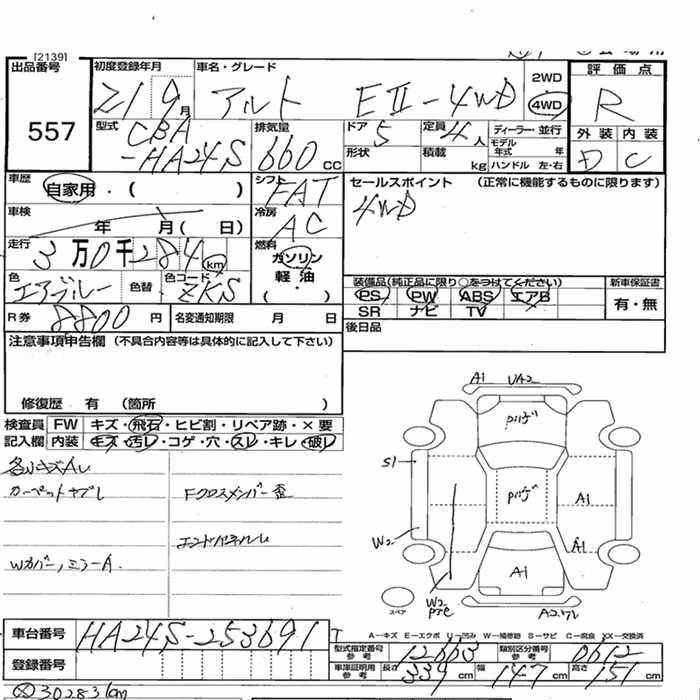 [2139]
出品番号 557
初度登録年月 21 9月
車名・グレード アルト EⅡ-4WD
2WD 4WD
評価点 R
外装 内装
D C
型式 CBA-HA24S
排気量 660 CC
ドア 5 形状
定員 4人 積載 kg
ディーラー・並行
モデル年式 年
ハンドル 左・右
車歴 自家用・( )
シフト FAT
セールスポイント (正常に機能するものに限ります)
4WD
車検 年 月( 日)
冷房 AC
走行 3万0千284km
燃料 ガソリン 軽・油 ( ・ )
色 エアブルー 色替 色コード ZKS
装備品(純正品に限り○をつけてください) 新車保証書
PS PW ABS エアB 有・無
SR ナビ TV
R券 8800円 名変通知期限 月 日
後日品
注意事項申告欄 (不具合内容等は具体的に記入して下さい)
修復歴 有 (箇所 )
検査員記入欄 FW キズ・飛石・ヒビ割・リペア跡・×要
内装 キズ・汚レ・コゲ・穴・スレ・キレ・破レ
カーペットヤブレ Fクロスメンバー歪
Wカバー、ミラーA
A1 UA2
S1
W2
A1
A1
A1
W2
スペア
A-キズ E-エクボ U-凹み W-補修跡 S-サビ C-腐食 XX-交換済
車台番号 HA24S-253691
登録番号
型式指定番号 参考 12663 類別区分番号 参考 0612
車庫証明用 参考 長さ 339cm 幅 147cm 高さ 151cm
30283km